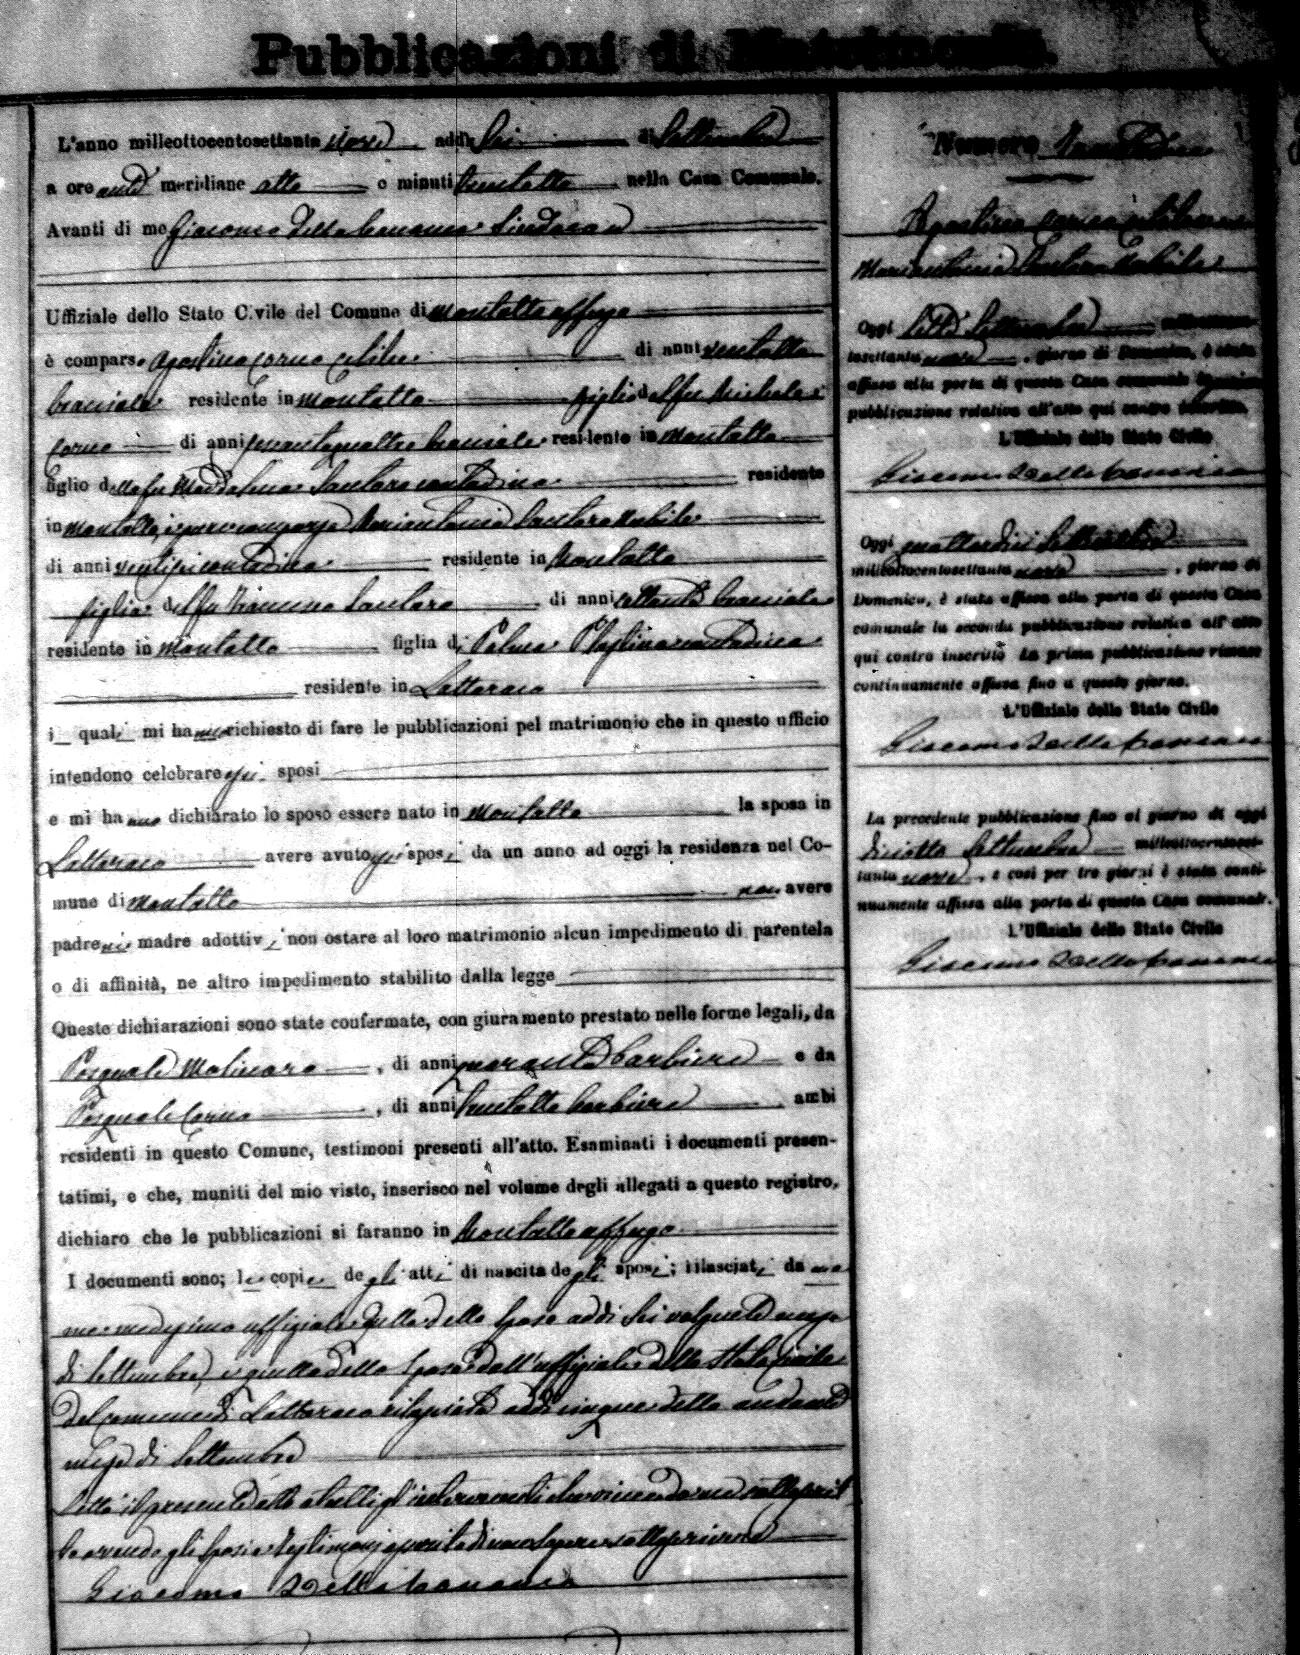 Pubblicazioni di Matrimonio.
L'anno milleottocentosettanta nove addì Sei di Settembre
a ore anti meridiane otto e minuti trentotto nella Casa Comunale.
Avanti di me Giacomo Della Cananea Sindaco
Uffiziale dello Stato Civile del Comune di Montalto Uffugo
è comparso Agostino Corno celibe di anni ventotto
bracciale residente in Montalto figlio del fu Michele
Corno di anni bracciale residente in Montalto
figlio della fu Maddalena Santoro contadina residente
in Montalto, e pure comparsa Mariantonia Santoro Nubile
di anni ventisei contadina residente in Montalto
figlia del fu Santoro di anni settanta bracciale
residente in Montalto figlia di Palma contadina
residente in Lattaraco
i quali mi hanno richiesto di fare le pubblicazioni pel matrimonio che in questo ufficio
intendono celebrare essi sposi
e mi hanno dichiarato lo sposo essere nato in Montalto la sposa in
Lattaraco avere avuto essi sposi da un anno ad oggi la residenza nel Co-
mune di Montalto non avere
padre ne madre adottivi non ostare al loro matrimonio alcun impedimento di parentela
o di affinità, ne altro impedimento stabilito dalla legge
Queste dichiarazioni sono state confermate, con giuramento prestato nelle forme legali, da
Pasquale Molinaro, di anni quaranta barbiere e da
Pasquale Corno, di anni trentotto barbiere ambi
residenti in questo Comune, testimoni presenti all'atto. Esaminati i documenti presen-
tatimi, e che, muniti del mio visto, inserisco nel volume degli allegati a questo registro,
dichiaro che le pubblicazioni si faranno in Montalto Uffugo
I documenti sono; le copie degli atti di nascita degli sposi; rilasciati da
me medesimo uffiziale quella dello sposo addì sei volgente mese
di Settembre, e quella della sposa dall'uffiziale dello Stato Civile
del comune di Lattaraco rilasciata addì cinque dello andante
mese di Settembre
Letto il presente atto a tutti gl'intervenuti
gli sposi e testimoni di non sapere sottoscrivere
Giacomo Della Cananea
Numero
Agostino Corno celibe
Mariantonia Santoro Nubile
Oggi sette Settembre milleottocen-
tosettanta nove, giorno di Domenica, è stata
affissa alla porta di questa Casa comunale la prima
pubblicazione relativa all'atto qui contro inscritto.
L'Uffiziale dello Stato Civile
Giacomo Della Cananea
Oggi quattordici Settembre
milleottocentosettanta nove, giorno di
Domenica, è stata affissa alla porta di questa Casa
comunale la seconda pubblicazione relativa all'atto
qui contro inscritto La prima pubblicazione rimase
continuamente affissa fino a questo giorno.
L'Uffiziale dello Stato Civile
Giacomo Della Cananea
La precedente pubblicazione fino al giorno di oggi
diciotto Settembre milleottocentoset-
tanta nove, e così per tre giorni è stata conti-
nuamente affissa alla porta di questa Casa comunale.
L'Uffiziale dello Stato Civile
Giacomo Della Cananea